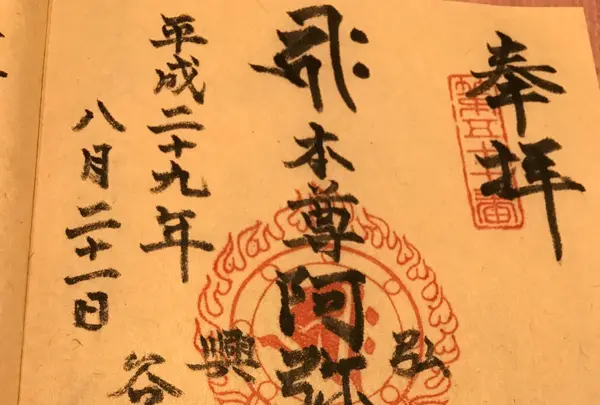 奉拝
弘
𑖮𑖿𑖨𑖱𑖾本尊阿弥
興
平成二十九年
八月二十一日
谷